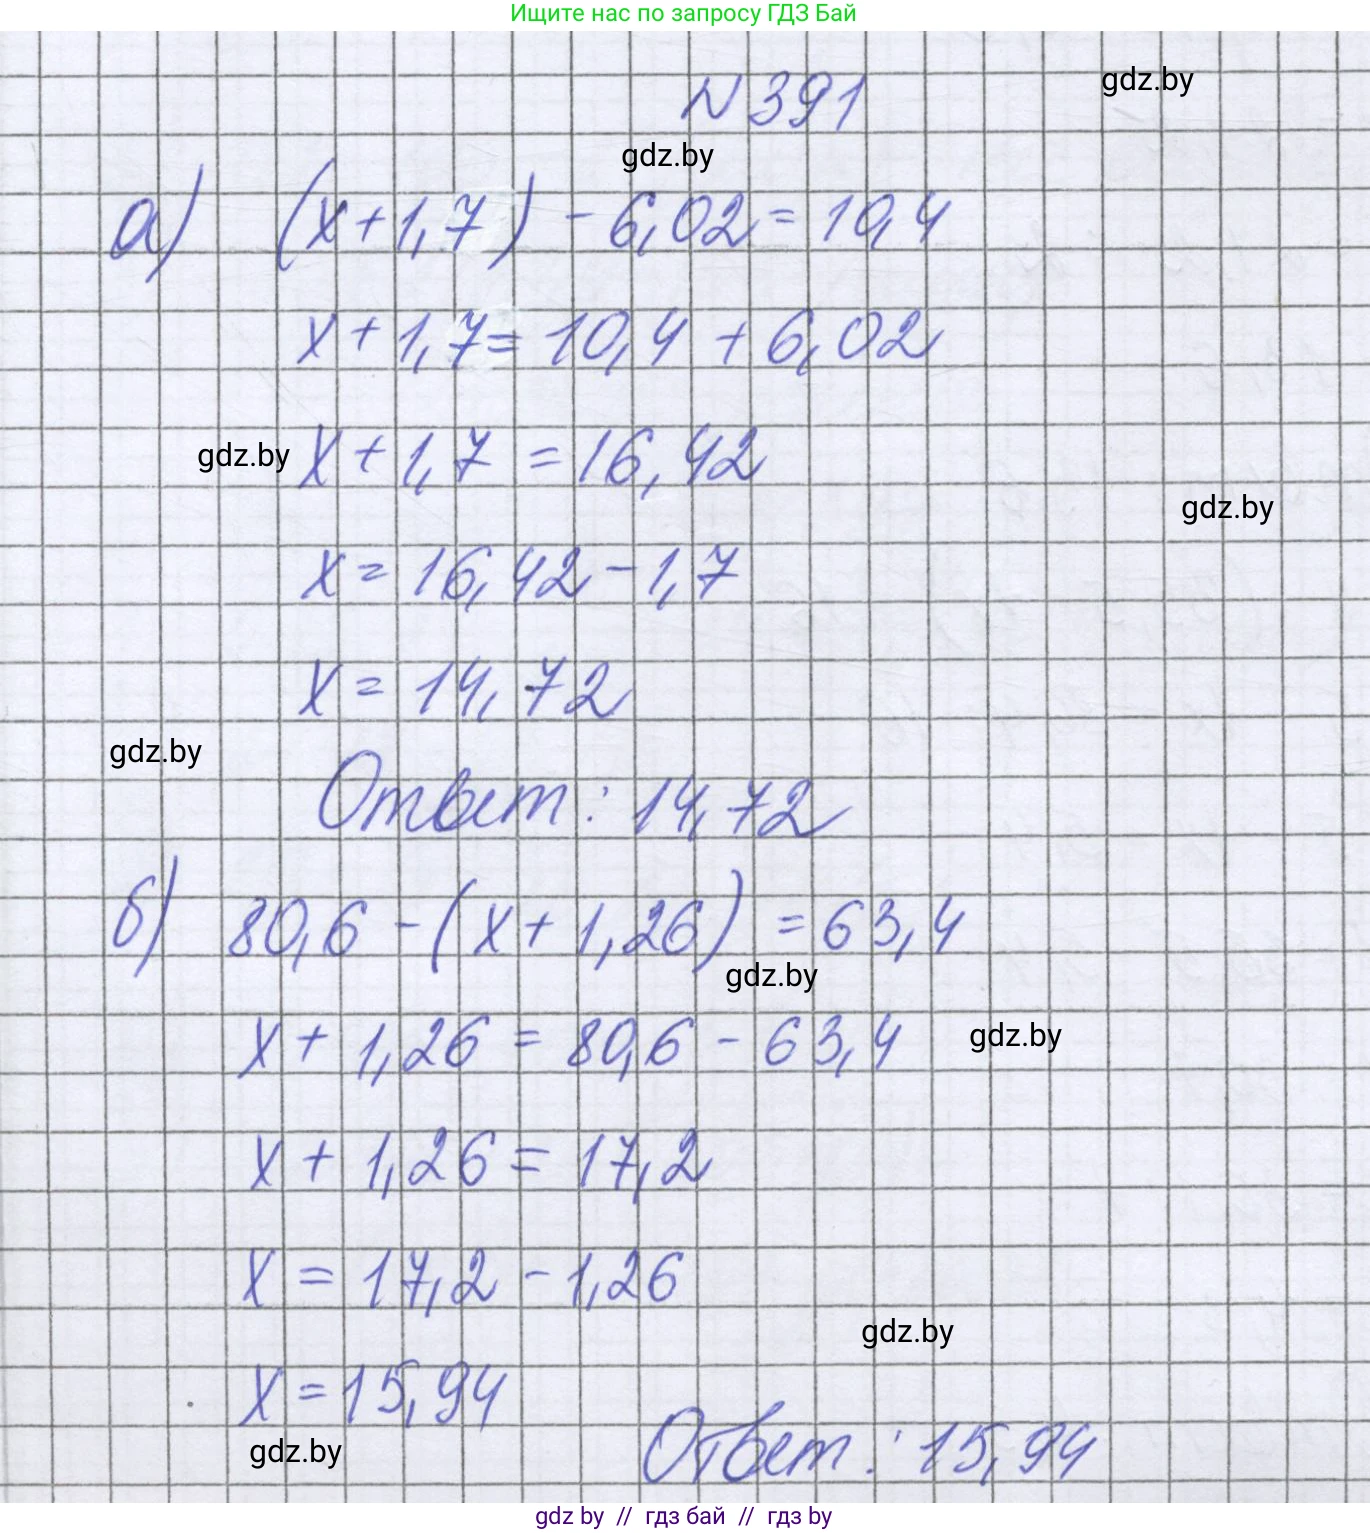 Ищите нас по запросу ГДЗ Бай
N 391
gdz.by
gdz.by
а) (x+1,7) - 6,02 = 10,4
x + 1,7 = 10,4 + 6,02
gdz.by
x + 1,7 = 16,42
gdz.by
x = 16,42 - 1,7
x = 14,72
gdz.by
Ответ: 14,72
б) 80,6 - (x + 1,26) = 63,4
gdz.by
x + 1,26 = 80,6 - 63,4
gdz.by
x + 1,26 = 17,2
x = 17,2 - 1,26
gdz.by
x = 15,94
gdz.by
Ответ: 15,94
gdz by // гдз бай // гдз by